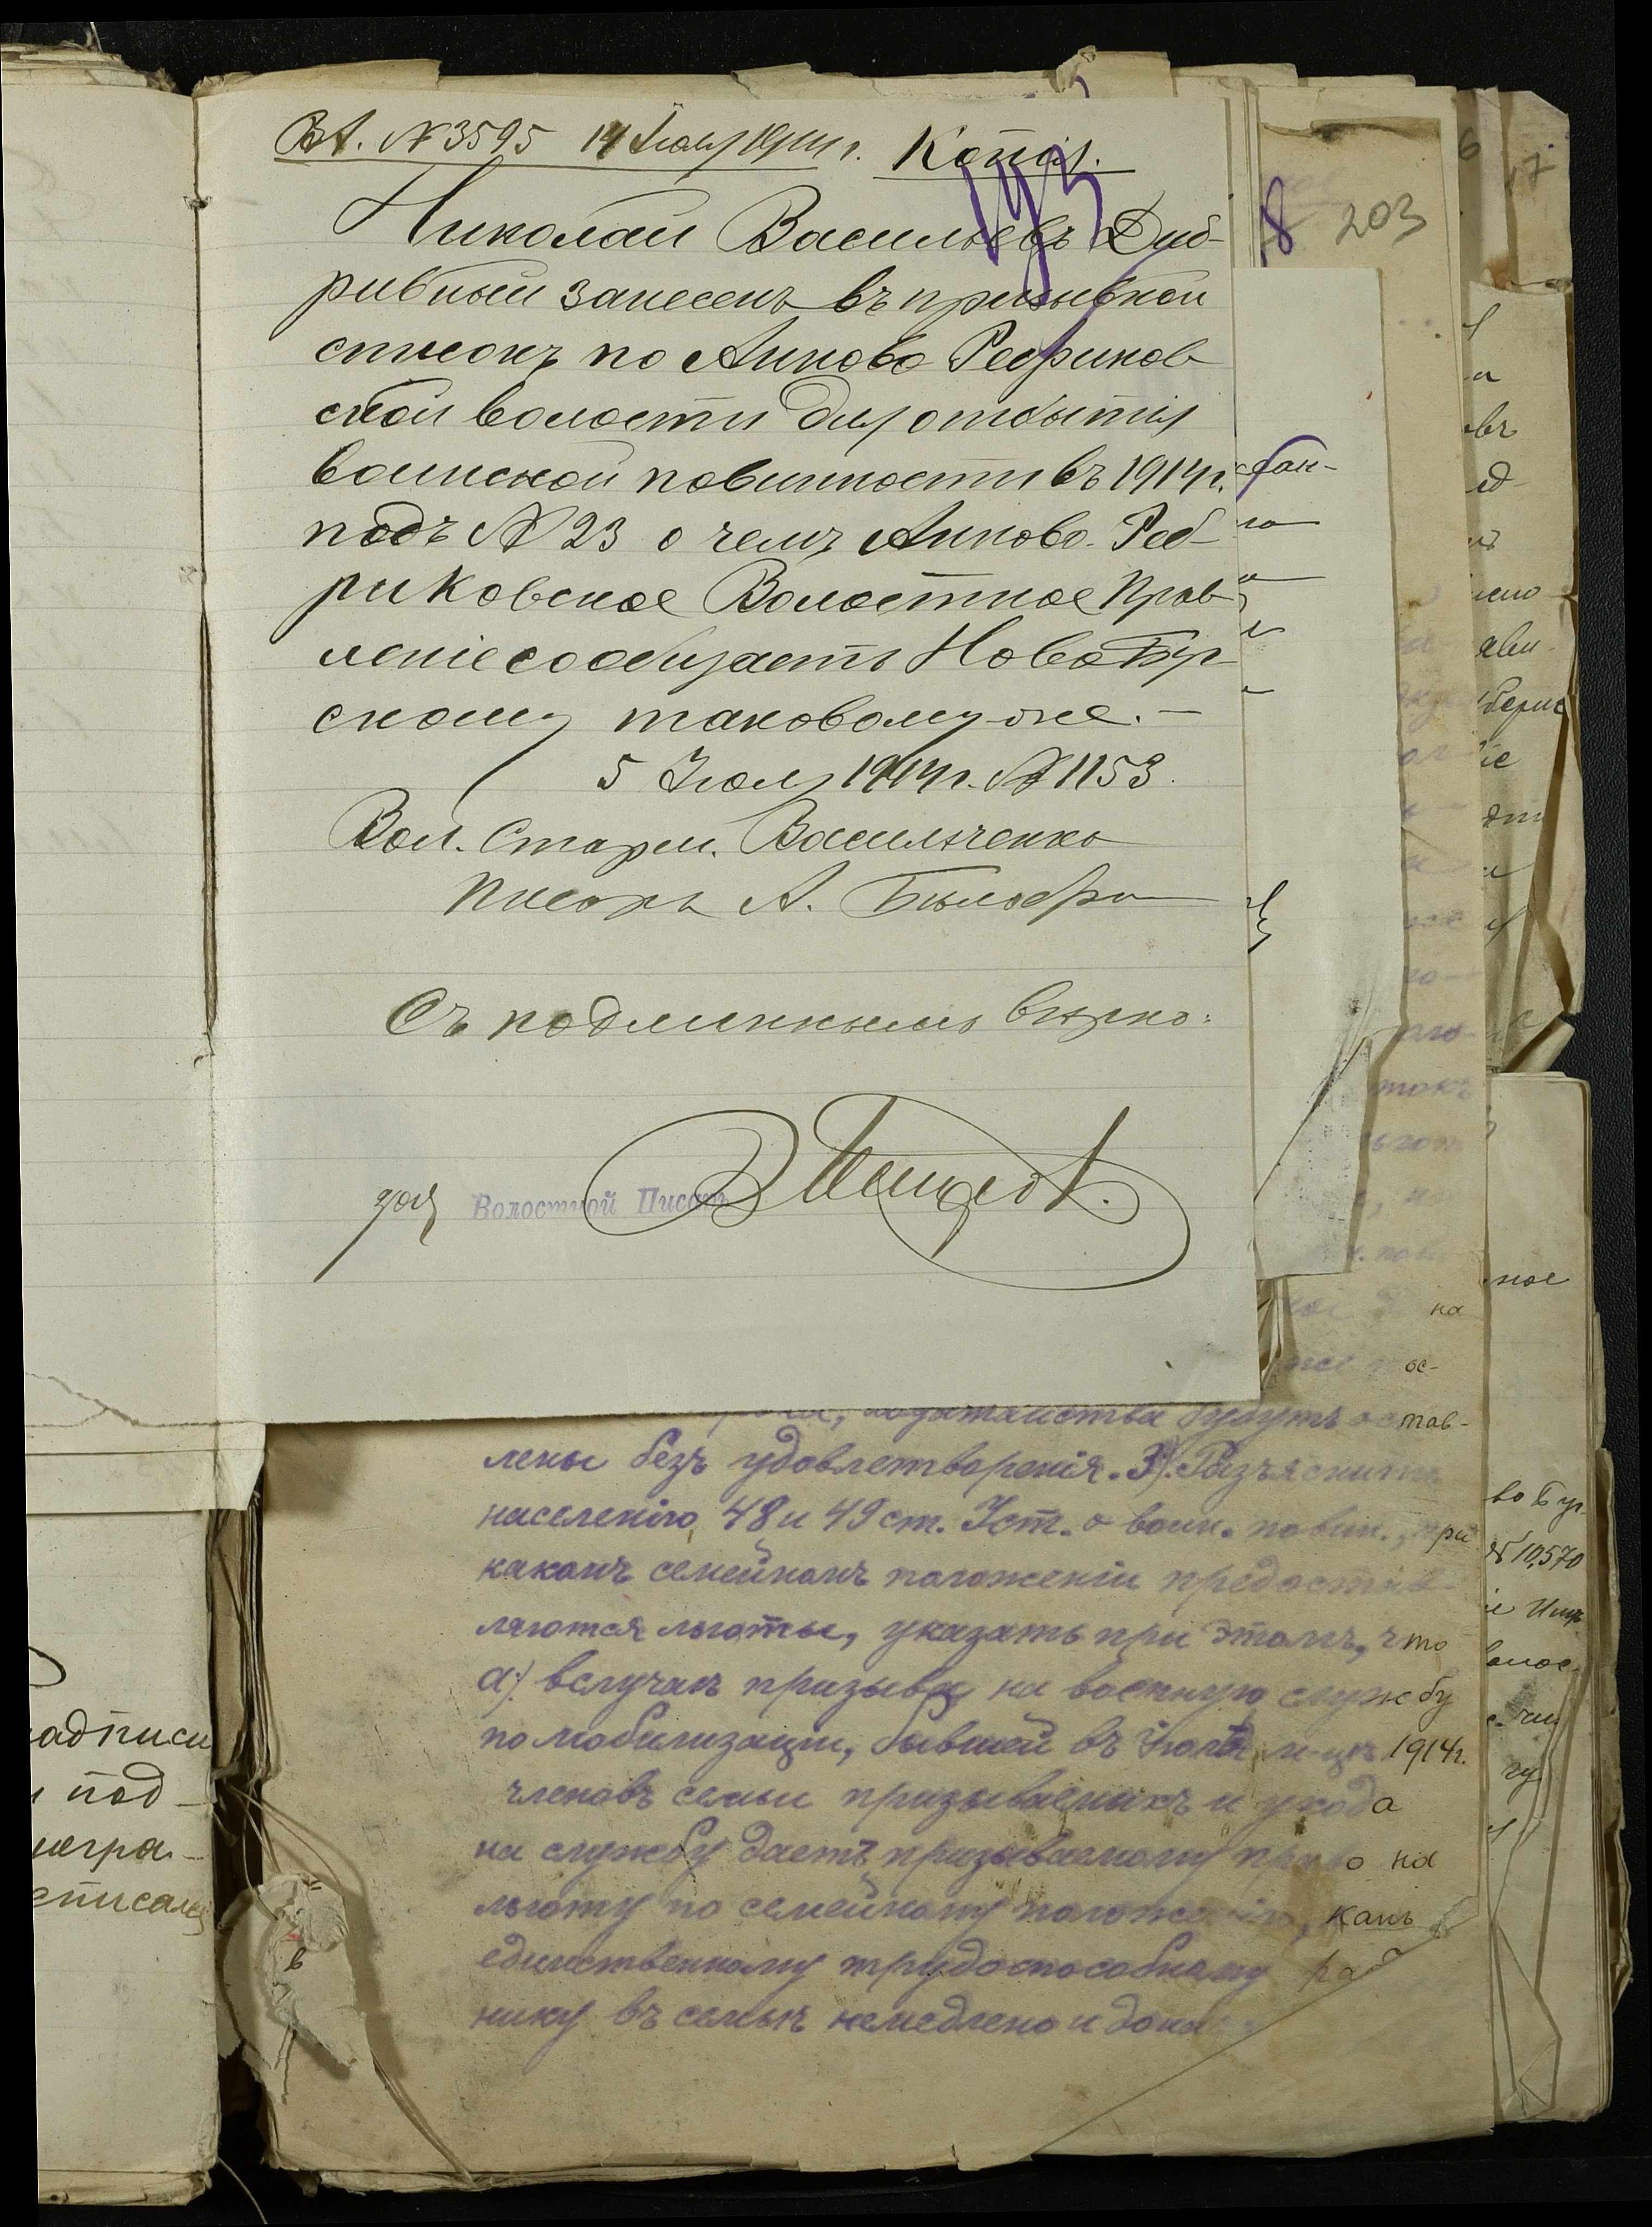 Вх. № 3595 14 Іюля 1914 г. Копія.
193
Николай Васильевъ Диб-
ривный занесенъ въ призывной
списокъ по Анново Ребриков
ской волости для отбытія
воинской повинности въ 1914 г.
подъ № 23 о чемъ Анново-Реб-
риковское Волостное Прав
леніе сообщаетъ Ново Бур
скому таковому-же. —
5 Іюля 1914 г. № 1153.
Вол. Старш. Васильченко
Писарь А.
Съ подлиннымъ вѣрно:
Волостной Писарь
8 203
6
17
лены безъ удовлетворенія. 3/. Разъяснить
населенію, 48 и 49 ст. Уст. о воин. повин., при
какомъ семейномъ положеніи предостав-
ляются льготы, указать при этомъ, что
а/. вслучаѣ призыва на военную службу
по мобилизаціи, бывшей въ Іюлѣ м-цѣ 1914 г.
членовъ семьи призываемыхъ и ухода
на службу даетъ призываемому право на
льготу по семейному положенію, какъ
единственному трудоспособному раб
нику въ семьѣ немедлено и
адписи
под
негра-
описалъ
во Бур.
№ 10,570